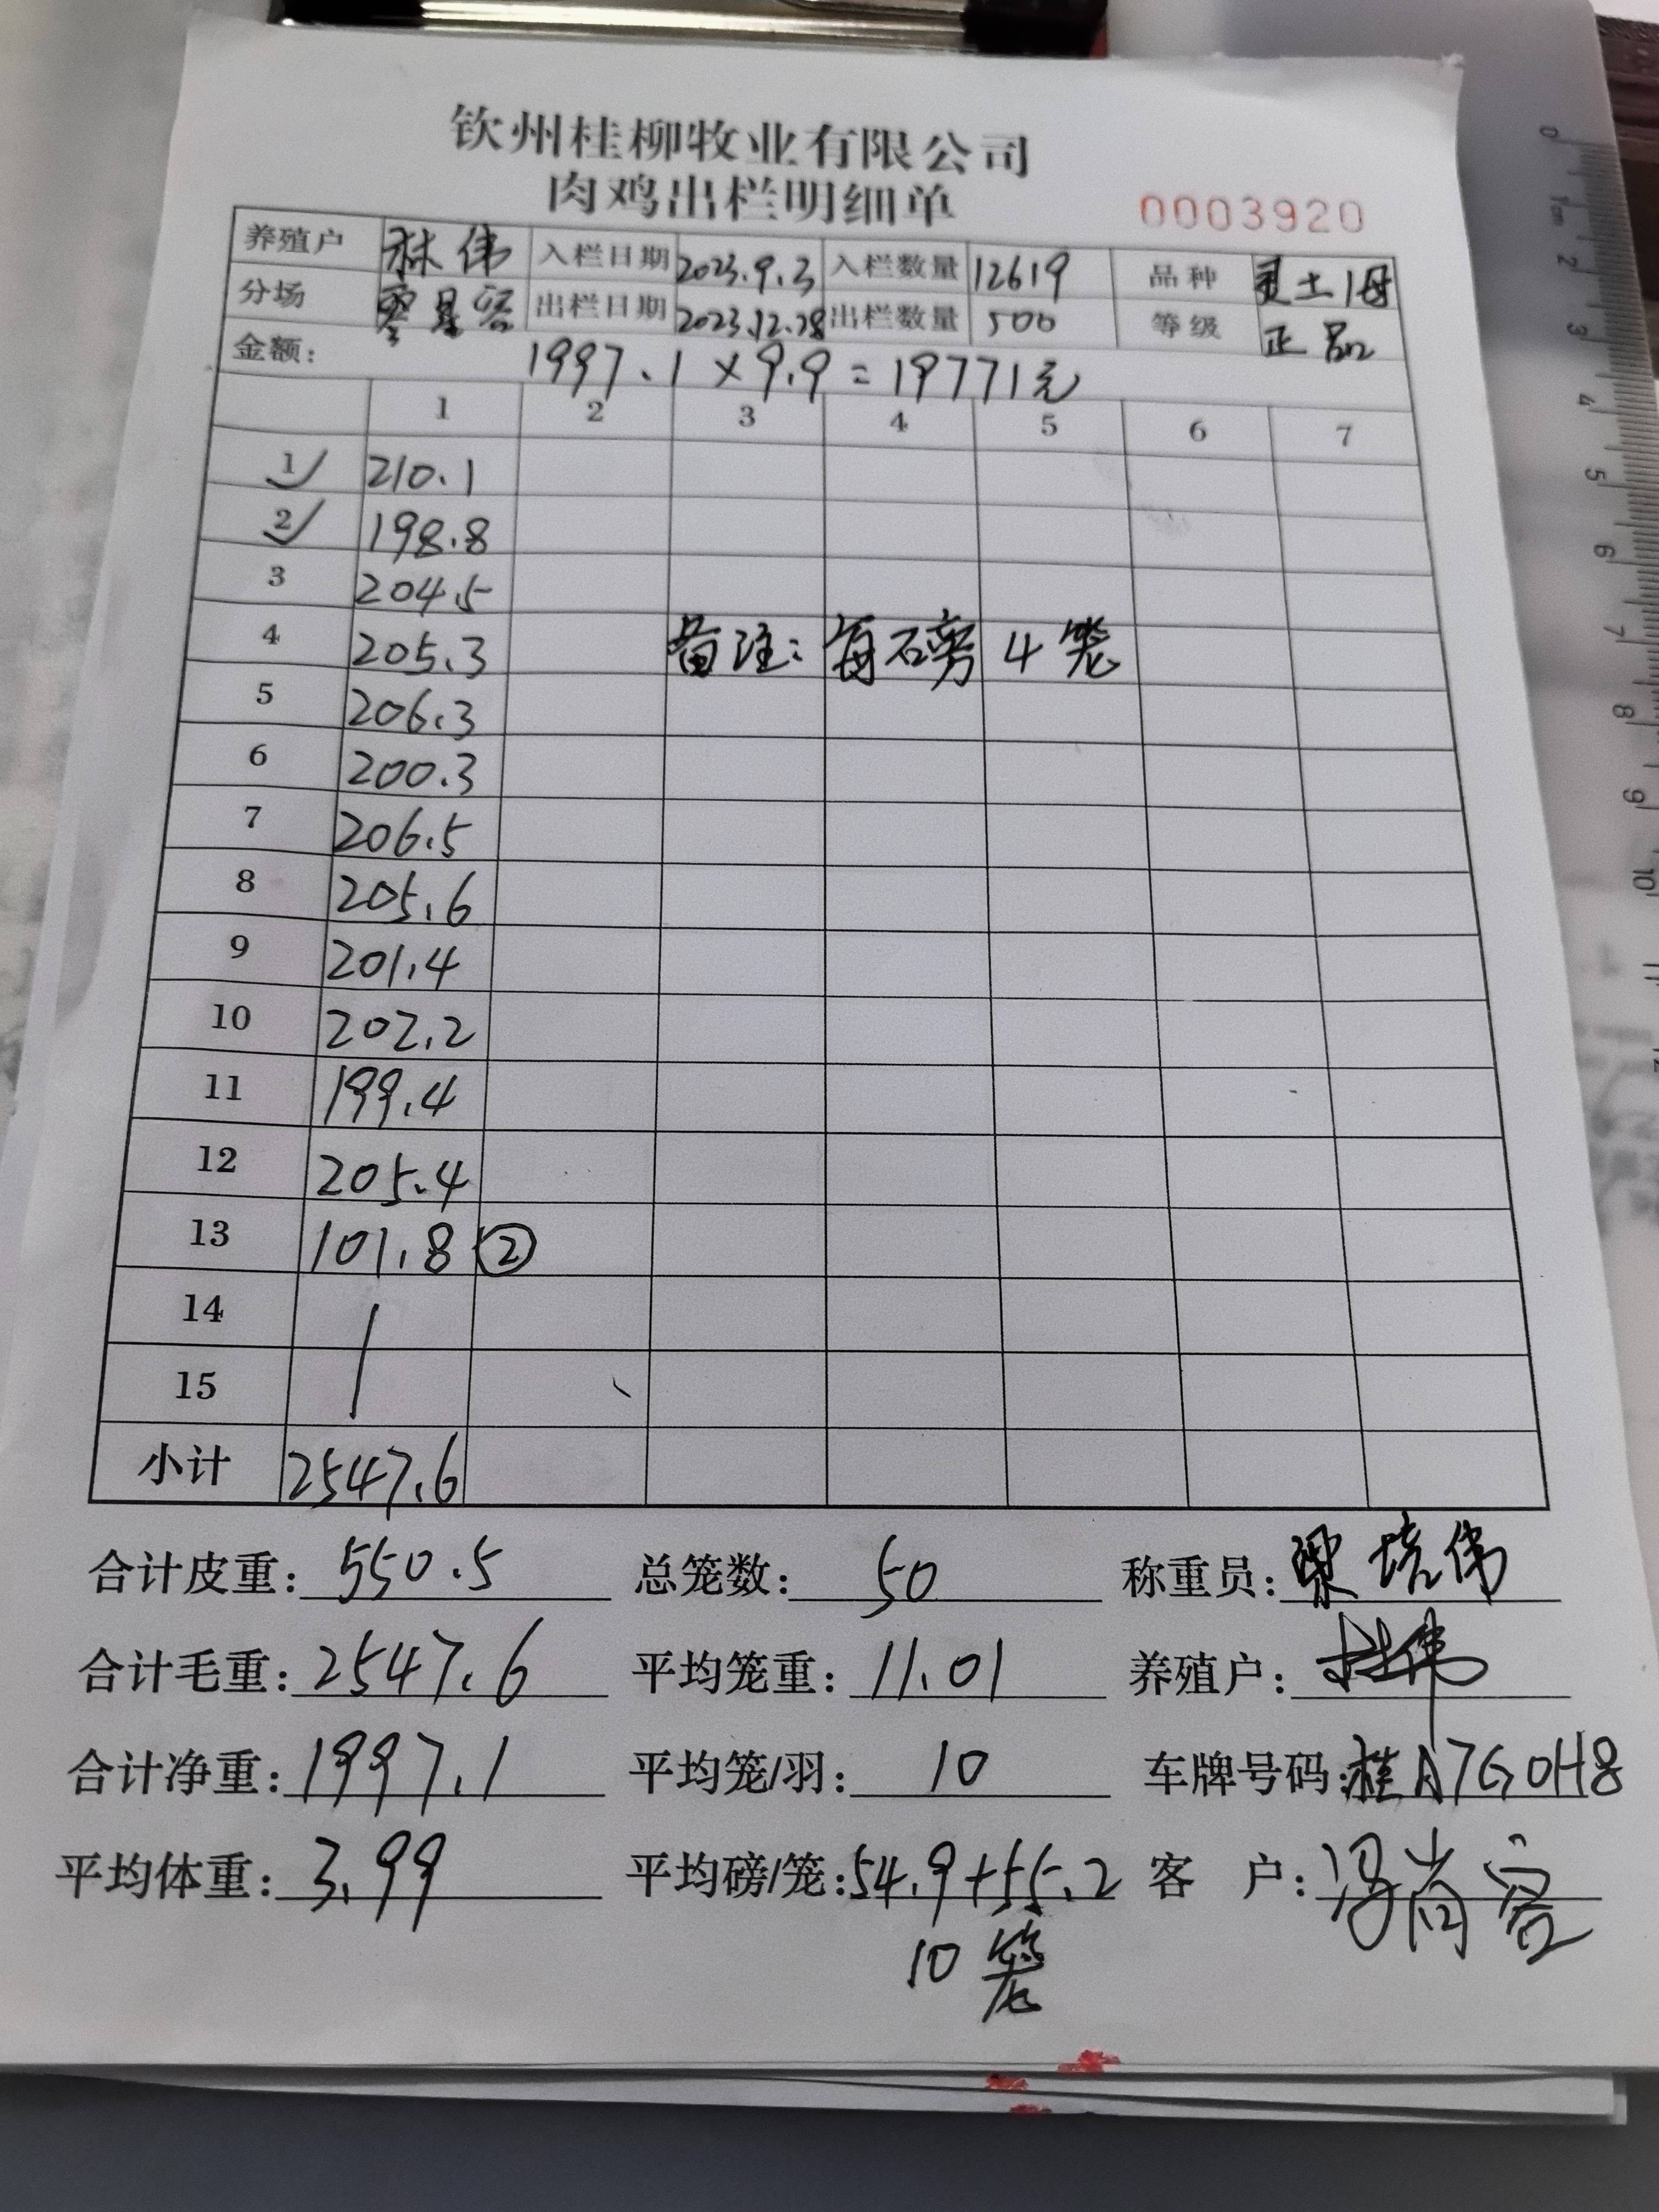 钦州桂柳牧业有限公司
肉鸡出栏明细单 0003920
养殖户 林伟 入栏日期 2023.9.3 入栏数量 12619 品种 灵土1母
分场 出栏日期 2023.12.28 出栏数量 500 等级 正品
金额: 1997.1×9.9=19771元
1 2 3 4 5 6 7
1 210.1
2 198.8
3 204.5
4 205.3 备注:每磅4笼
5 206.3
6 200.3
7 206.5
8 205.6
9 201.4
10 202.2
11 199.4
12 205.4
13 101.8 ②
14
15
小计 2547.6
合计皮重: 550.5 总笼数: 50 称重员: 梁培伟
合计毛重: 2547.6 平均笼重: 11.01 养殖户: 林伟
合计净重: 1997.1 平均笼/羽: 10 车牌号码: 桂A7G0H8
平均体重: 3.99 平均磅/笼: 54.9+55.2 客 户: 冯尚
10笼
0 1cm 2 3 4 5 6 7 8 9 10 11 12